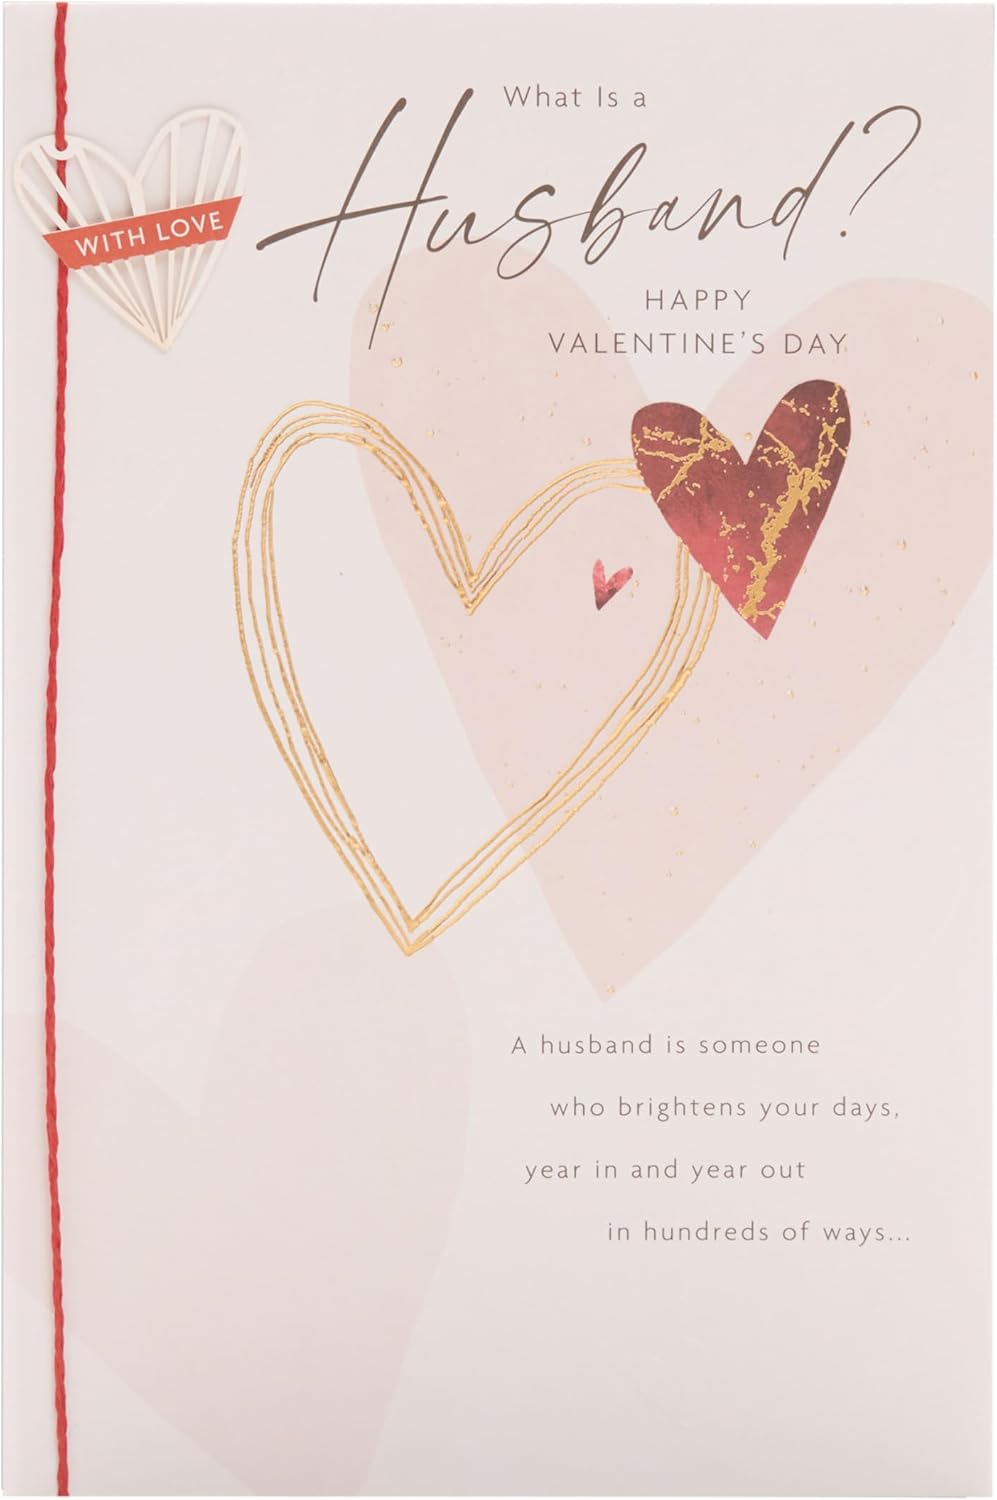 What Is a
Husband?
WITH LOVE
HAPPY
VALENTINE'S DAY
A husband is someone
who brightens your days,
year in and year out
in hundreds of ways...